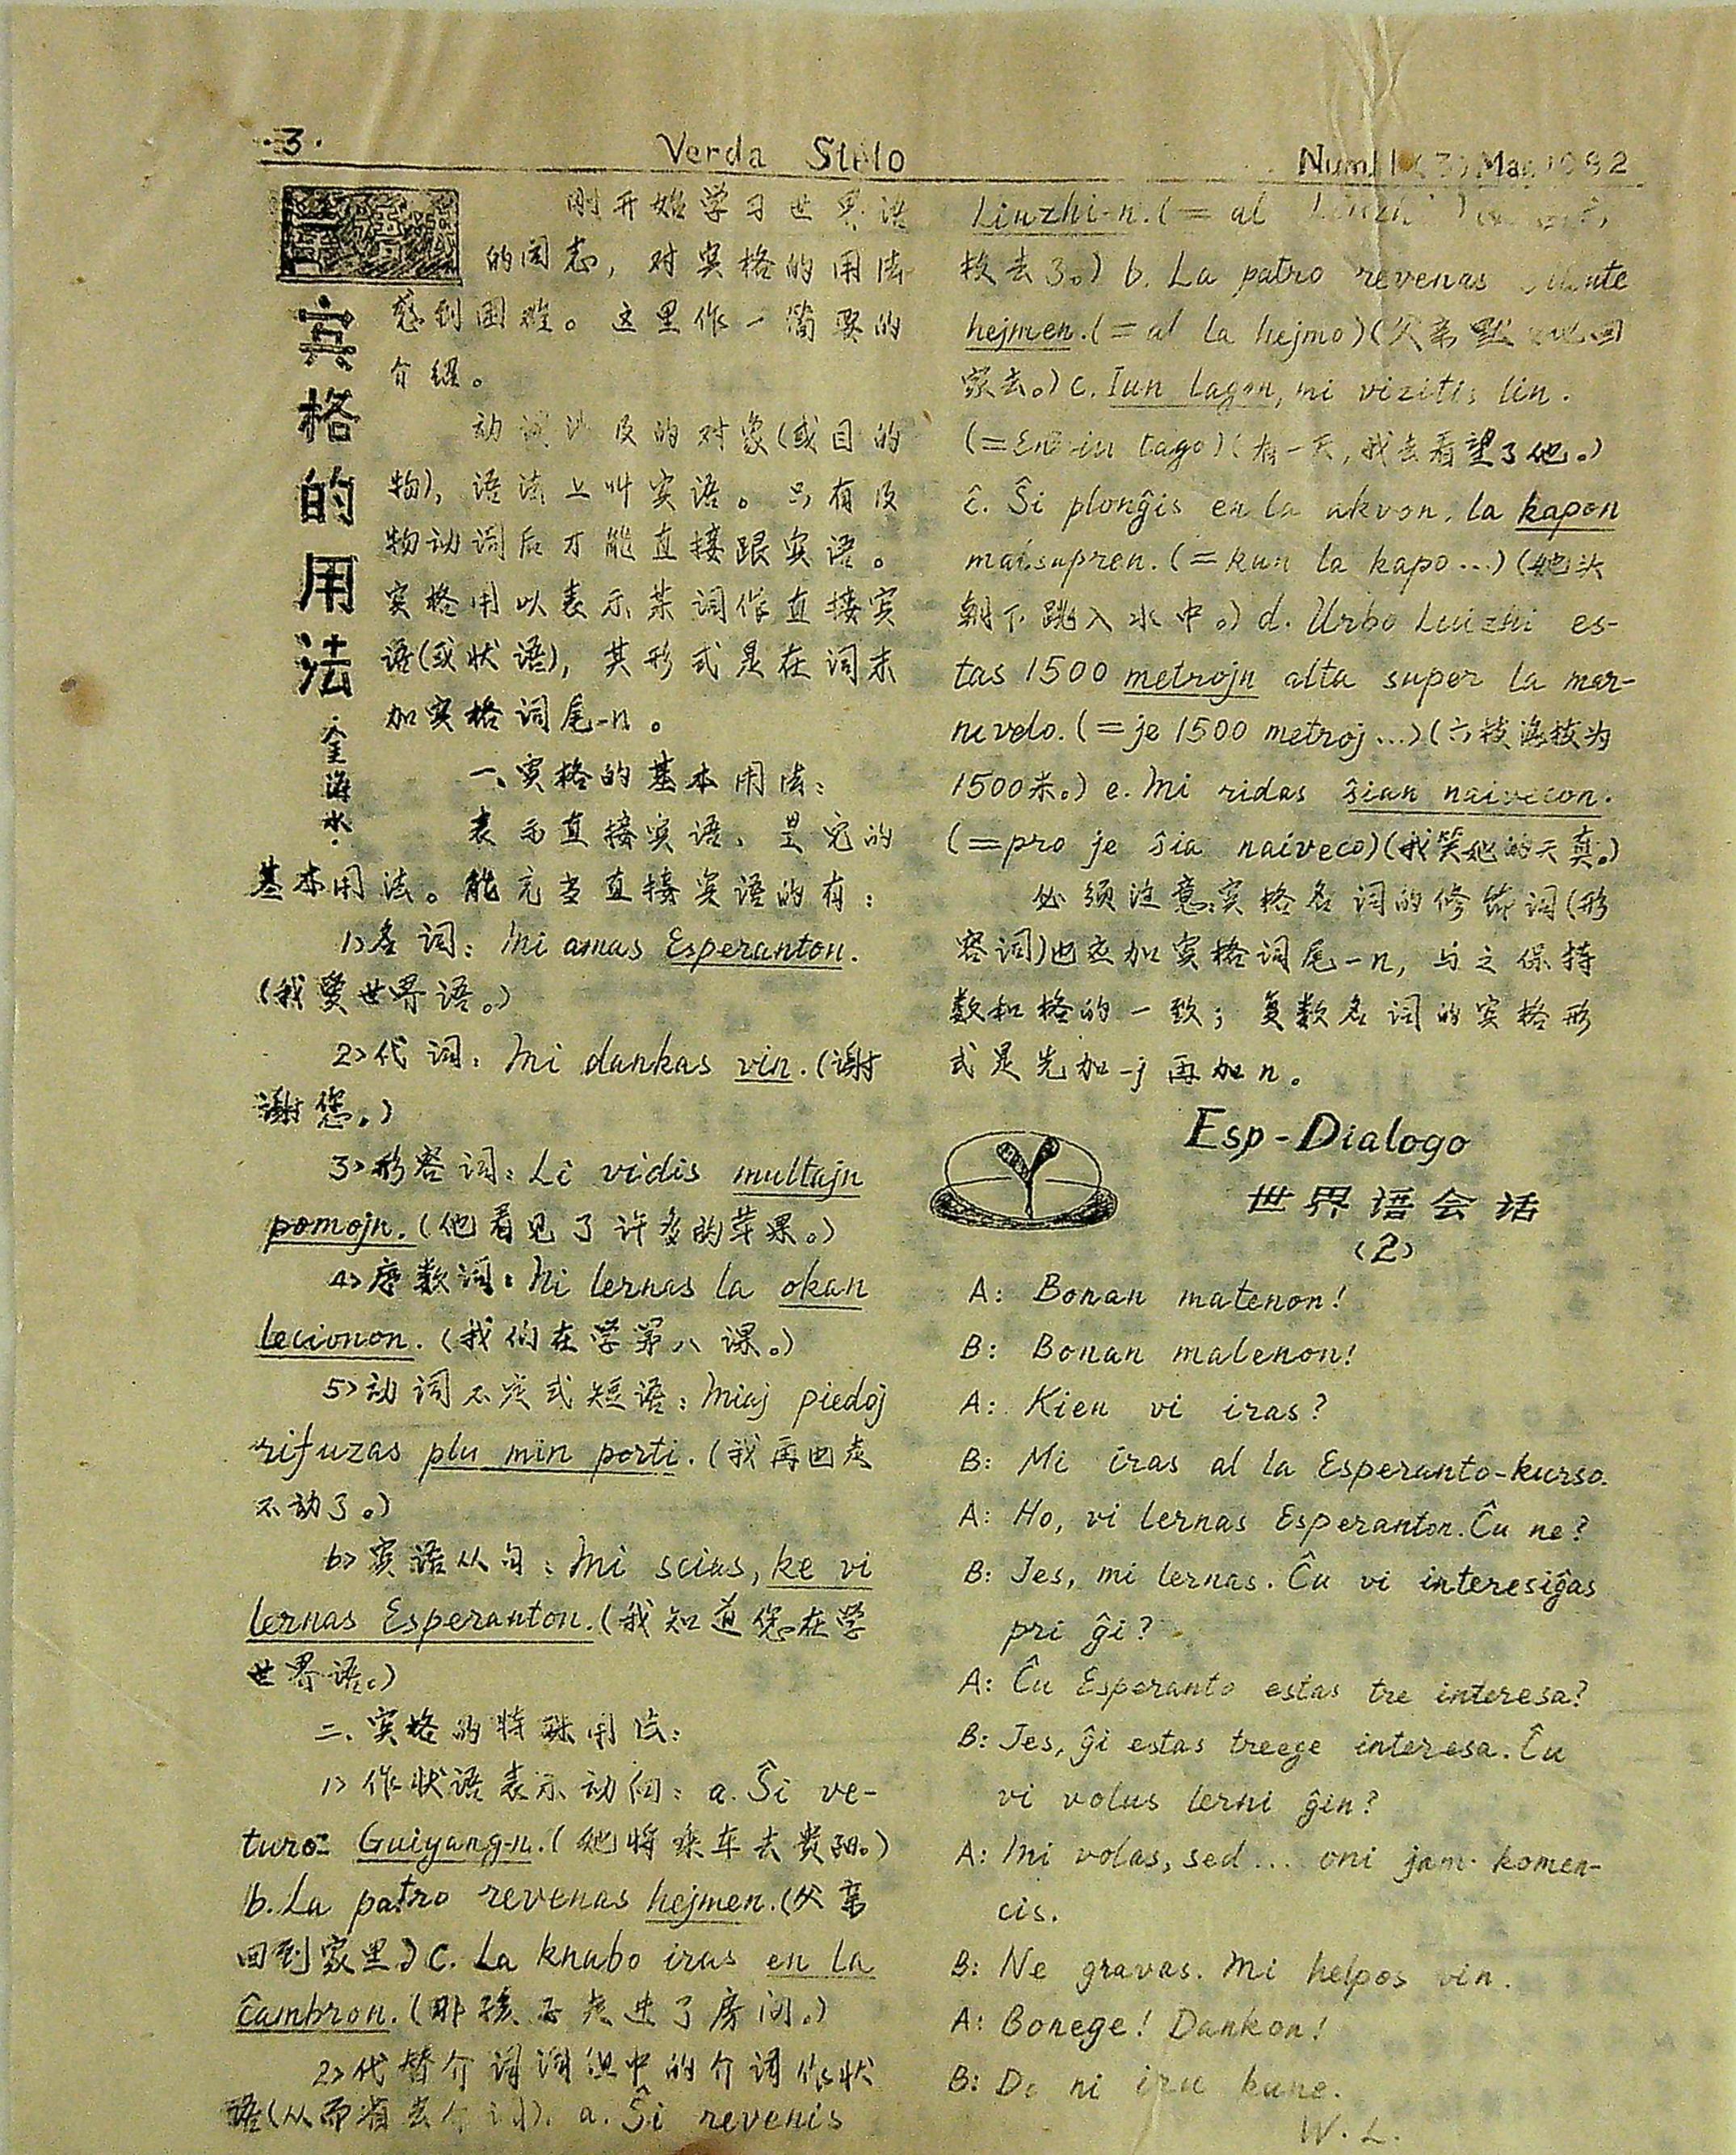 ·3·
Verda Stelo
Num
刚开始学习世界语
的同志，对宾格的用法
感到困难。这里作一简要的
介绍。
宾格的用法
·金海水·
动词涉及的对象(或目的
物)，语法上叫宾语。只有及
物动词后才能直接跟宾语。
宾格用以表示某词作直接宾
语(或状语)，其形式是在词末
加宾格词尾-n。
一、宾格的基本用法：
表示直接宾语，是它的
基本用法。能充当直接宾语的有：
1>名词：Mi amas Esperanton.
(我爱世界语。)
2>代词：Mi dankas vin.(谢
谢您。)
3>形容词：Li vidis multajn
pomojn.(他看见了许多的苹果。)
4>序数词：Ni lernas la okan
lecionon.(我们在学第八课。)
5>动词不定式短语：Miaj piedoj
rifuzas plu min porti.(我再也走
不动了。)
6>宾语从句：Mi scias, ke vi
lernas Esperanton.(我知道您在学
世界语。)
二、宾格的特殊用法：
1>作状语表示动向：a. Ŝi ve-
turos Guiyang-n.(她将乘车去贵阳。)
b. La patro revenas hejmen.(父亲
回到家里。)c. La knabo iras en la
ĉambron.(那孩子走进了房间。)
2>代替介词词组中的介词作状
语(从而省去介词)．a. Ŝi revenis
Liuzhi-n.(= al Liuzhi)
枝去了。) b. La patro revenas silente
hejmen.(= al la hejmo)(父亲默默地回
家去。) c. Iun tagon, mi vizitis lin.
(=En iu tago)(有一天,我去看望了他。)
ĉ. Ŝi plonĝis en la akvon, la kapon
malsupren.(=kun la kapo...)(她头
朝下跳入水中。) d. Urbo Liuzhi es-
tas 1500 metrojn alta super la mar-
nivelo.(=je 1500 metroj...)(六枝海拔为
1500米。) e. Mi ridas ŝian naivecon.
(=pro je ŝia naiveco)(我笑她的天真。)
必须注意：宾格名词的修饰词(形
容词)也应加宾格词尾-n，与之保持
数和格的一致；复数名词的宾格形
式是先加-j再加n。
Esp-Dialogo
世界语会话
<2>
A: Bonan matenon!
B: Bonan matenon!
A: Kien vi iras?
B: Mi iras al la Esperanto-kurso.
A: Ho, vi lernas Esperanton. Ĉu ne?
B: Jes, mi lernas. Ĉu vi interesiĝas
pri ĝi?
A: Ĉu Esperanto estas tre interesa?
B: Jes, ĝi estas treege interesa. Ĉu
vi volus lerni ĝin?
A: Mi volas, sed... oni jam komen-
cis.
B: Ne gravas. Mi helpos vin.
A: Bonege! Dankon!
B: Do ni iru kune.
W. L.